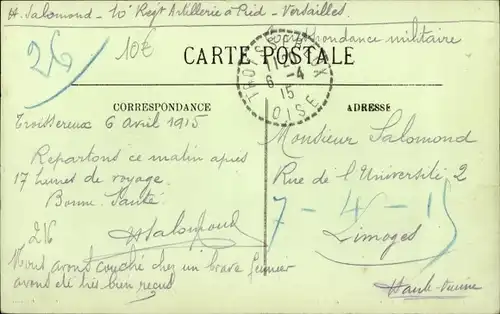 H. Salomond _ 10e Regt Artillerie à Pied _ Versailles.
Correspondance militaire
26
10€
CARTE POSTALE
TROISSEREUX
11
6 -4
15
OISE
CORRESPONDANCE
ADRESSE
Troissereux 6 Avril 1915
Repartons ce matin apres
17 heures de voyage.
Bonne Santé
216
HSalomond
Nous avons couché chez un brave fermier
avons été très bien reçus
Monsieur Salomond
Rue de l'Université 2
7-4-15
Limoges
Haute-Vienne